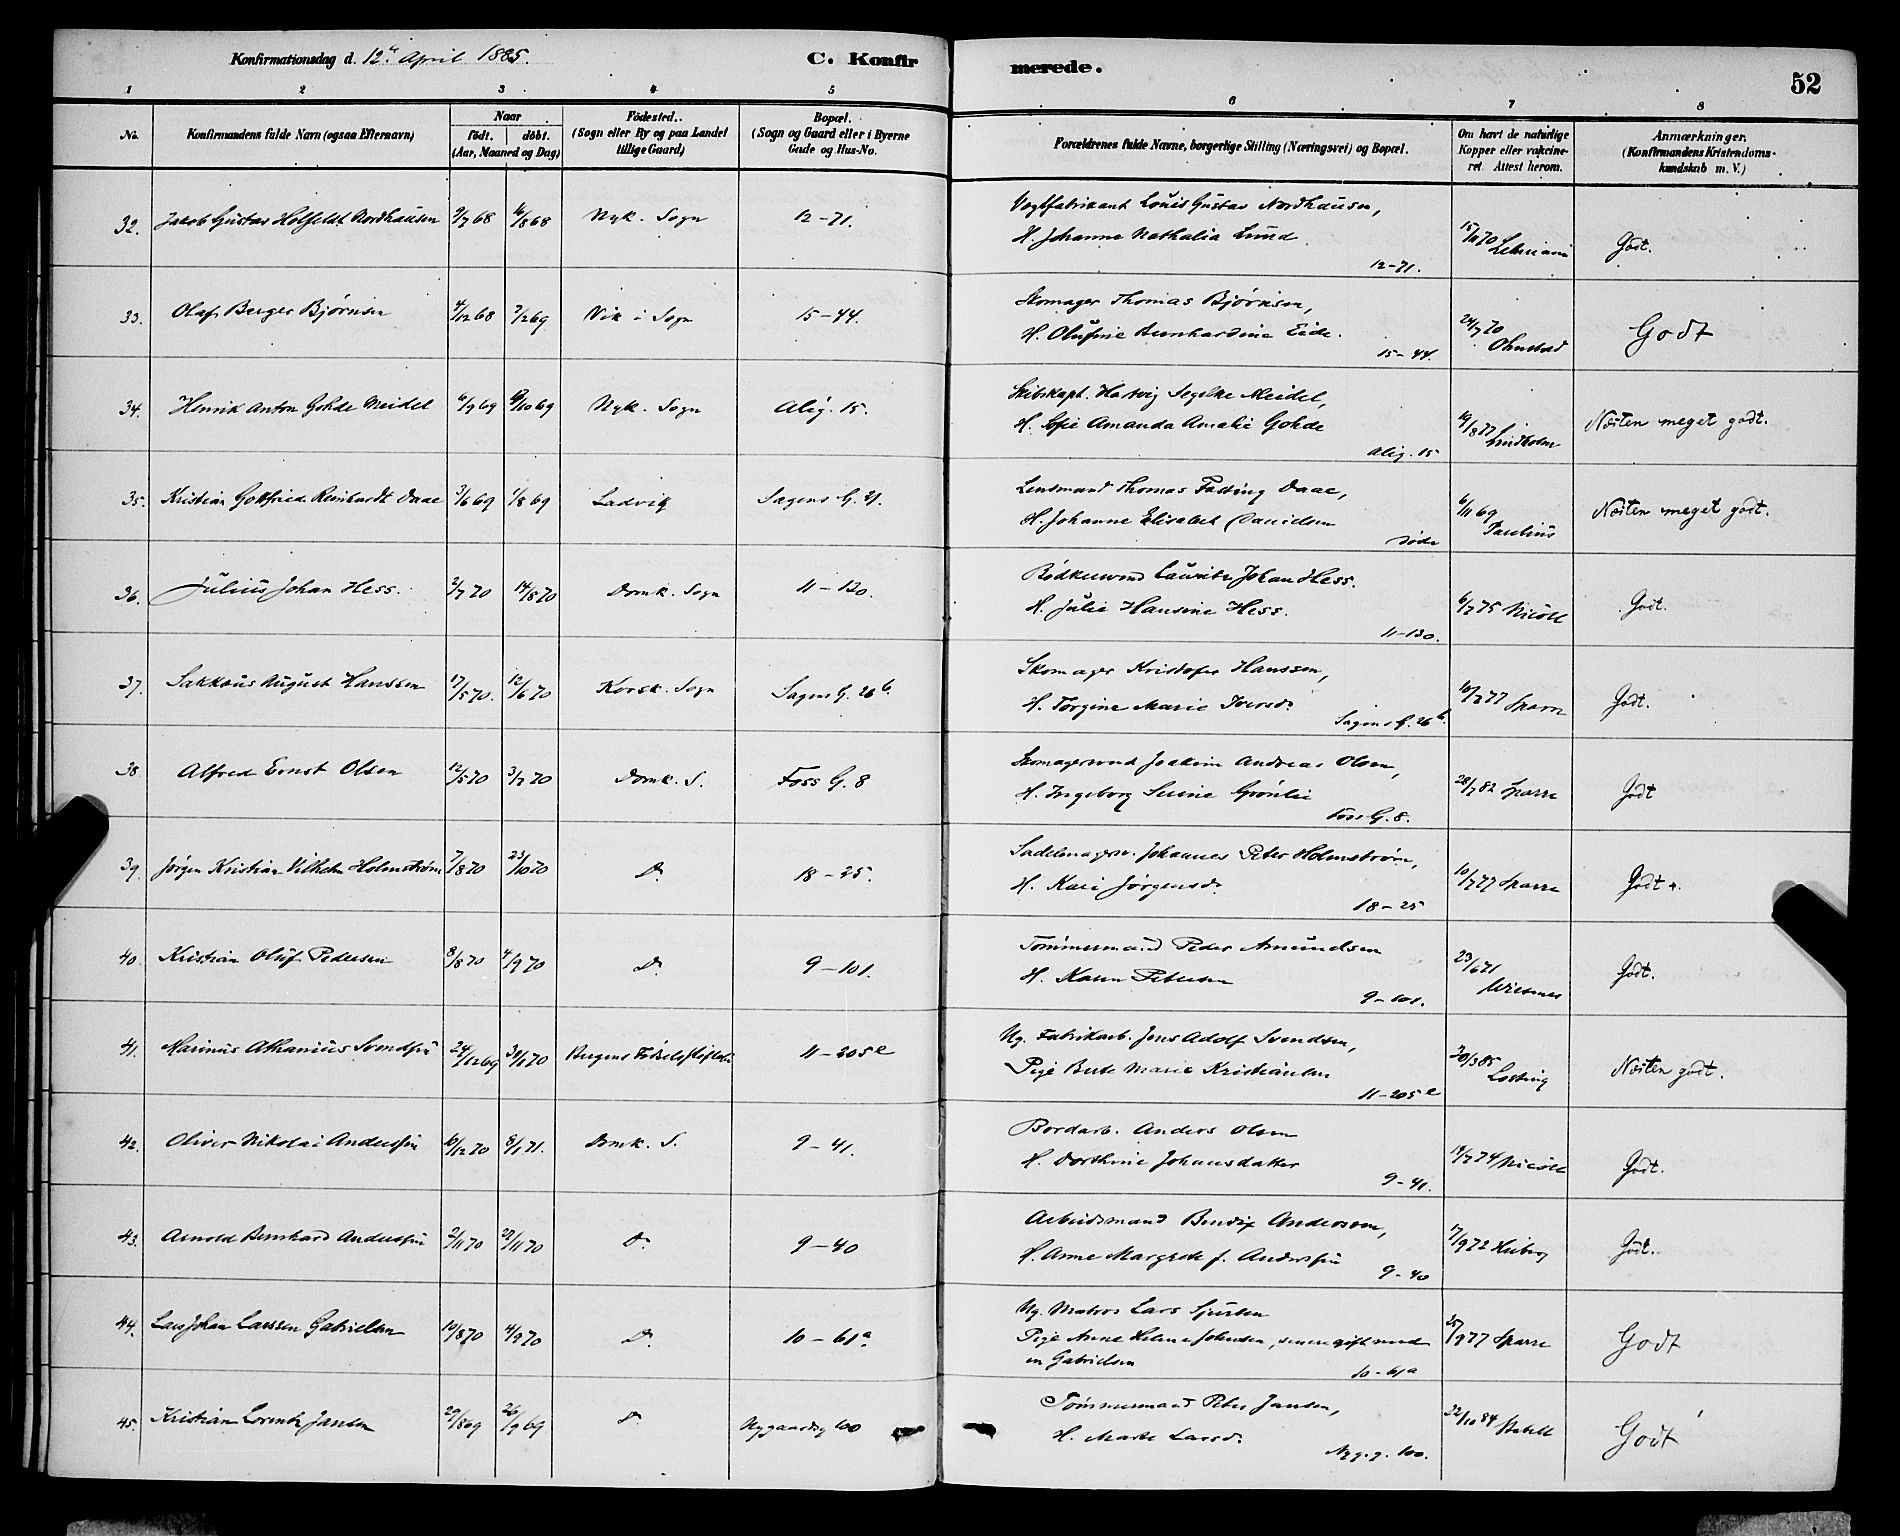 Konfirmationsdag d. 12te April 1885.
C. Konfirmerede.
52
1 2 3 4 5 6 7 8
No.
Konfirmandens fulde Navn (ogsaa Efternavn)
Naar
födt. döbt.
(Aar, Maaned og Dag)
Födested.
(Sogn eller By og paa Landet
tillige Gaard)
Bopæl.
(Sogn og Gaard eller i Byerne
Gade og Hus-No.
Forældrenes fulde Navne, borgerlige Stilling (Næringsvei) og Bopæl.
Om havt de naturlige
Kopper eller vakcine-
ret. Attest herom.
Anmærkninger.
(Konfirmandens Kristendoms-
kundskab m. V.)
32. Jakob Gustav Holfeldt Nordhausen 9/7 68 16/8 68 Nyk. Sogn 12-71.
Louis Gustav Nordhausen,
H. Johanne Nathalia Lund
12-71.
15/11 70
Godt.
33. Olaf Berger Bjørnsen 4/12 68 7/2 69 Vik i Sogn 15-44.
Skomager Thomas Bjørnsen,
H. Olufine Bernhardine Eide.
15-44.
24/7 70
Ohnstad
Godt
34. Henrik Anton Gohde Meidel 6/9 69 9/10 69 Nyk. Sogn Alig. 15.
Skibskapt. Hartvig Segelke Meidel,
H. Sofie Amanda Amalie Gohde
Alig. 15
14/8 77 Lindholm
Næsten meget godt.
35. Kristian Gotfried Reinhardt Daae 3/6 69 1/8 69 Ladvig Sagens G. 21.
Lensmand Thomas Fasting Daae,
H. Johanne Elisabet Danielsen
døde
6/11 69
Paulius
Næsten meget godt.
36. Julius Johan Hess. 2/7 70 14/8 70 Domk. Sogn 11-130.
Bødkersvend Lauritz Johan Hess.
H. Julie Hansine Hess.
11-130.
6/7 75 Nicoll
Godt.
37. Sakkæus August Hanssen 17/5 70. 12/6 70 Korsk. Sogn Sagens G. 26b.
Skomager Kristofer Hanssen,
H. Torgine Marie Iversd.
Sagens G. 26b.
10/7 77 Sparre
Godt.
38. Alfred Ernst Olsen 12/5 70 3/7 70 Domk. S. Foss G. 8
Skomagersvend Joakim Andreas Olsen,
H. Ingeborg Serine Grønlie
Foss G. 8.
28/7 82 Sparre
Godt
39. Jørgen Kristian Vilhelm Holmstrøm 7/8 70 23/10 70 Do. 18-25.
Sadelmagersv. Johannes Peter Holmstrøm,
H. Kari Jørgensd.
18-25
10/7 77 Sparre
Godt +.
40. Kristian Oluf Pedersen 8/8 70 4/9 70 Do. 9-101.
Tømmermand Peder Amundsen
H. Karen Petersen
9-101.
23/6 71
Godt.
41. Marinus Athanius Svendsen 24/12 69 30/1 70 Bergens Fødselsstiftelse 11-205e
Ug. Fabrikarb. Jens Adolf Svendsen,
Pige Berte Marie Kristiansen
11-205e
30/3 85
Næsten godt.
42. Oliver Nikolai Anderssen 10/12 70 8/1 71. Domk. S. 9-41.
Bordarb. Anders Olsen
H. Dorthine Johannsdatter
9-41.
14/7 74 Nicoll
Godt.
43. Arnold Bernhard Anderssen 2/11 70 28/11 70 Do. 9-40
Arbeidsmand Bendix Anderssen,
H. Anne Margrete f. Anderssen
9-40
17/9 72 Heiberg
Godt.
44. Lars Johan Larssen Gabrielsen 10/8 70 4/9 70 Do. 10-61a
Ug. Matros Lars Sjursen
Pige Anne Helene Johnsen, senere gift med
en Gabrielsen
10-61a
25/9 77 Sparre
Godt
45. Kristian Lorentz Jansen 29/8 69 26/9 69 Do. Nygaardsg 100
Tømmermand Peter Jansen,
H. Marte Larsd.
Nyg.g. 100.
22/10 84 Stabell
Godt